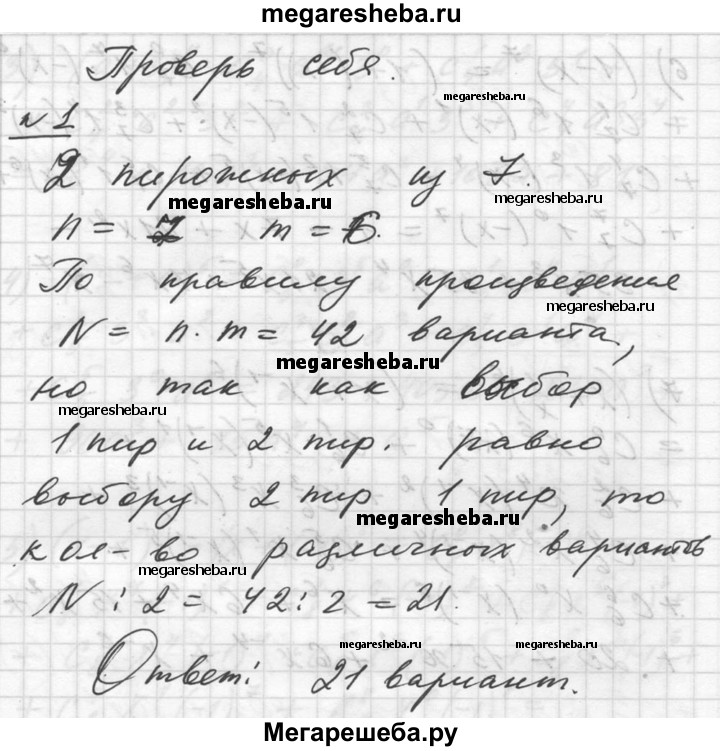 megaresheba.ru
Проверь себя.
megaresheba.ru
№1
2 пирожных из 7.
megaresheba.ru
n = 7 m = 6.
По правилу произведения
megaresheba.ru
N = n · m = 42 варианта,
megaresheba.ru
но так как выбор
megaresheba.ru
1 пир и 2 пир. равно
выбору 2 пир 1 пир, то
megaresheba.ru
кол-во различных вариантов
megaresheba.ru
N : 2 = 42 : 2 = 21.
megaresheba.ru megaresheba.ru
Ответ: 21 вариант.
Мегарешеба.ру